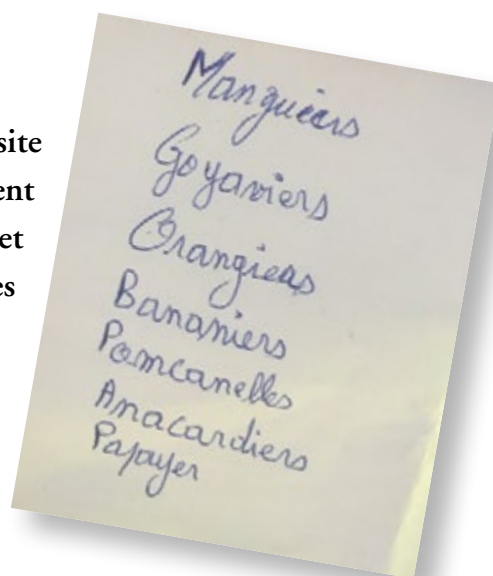 site
ent
et
es
Manguiers
Goyaviers
Orangieas
Bananiers
Pomcanelles
Anacardiers
Papayer